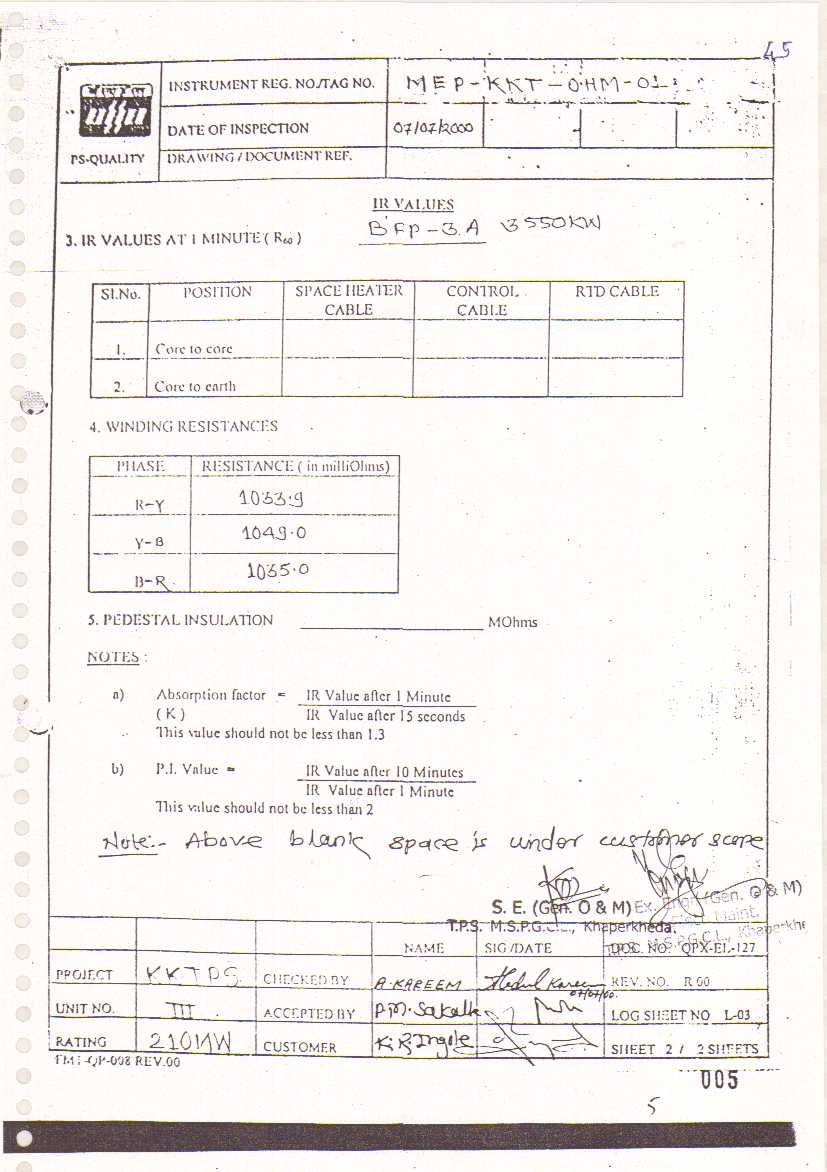 45
INSTRUMENT REG. NO./TAG NO. MEP-KKT-OHM-01
DATE OF INSPECTION 07/07/2000
PS-QUALITY DRAWING / DOCUMENT REF.
IR VALUES
BFP-3.A 3550KW
3. IR VALUES AT 1 MINUTE ( R60 )
Sl.No. POSITION SPACE HEATER CABLE CONTROL CABLE RTD CABLE
1. Core to core
2. Core to earth
4. WINDING RESISTANCES
PHASE RESISTANCE ( in milliOhms)
R-Y 1033.9
Y-B 1049.0
B-R 1035.0
5. PEDESTAL INSULATION MOhms
NOTES :
a) Absorption factor = IR Value after 1 Minute
( K ) IR Value after 15 seconds
This value should not be less than 1.3
b) P.I. Value = IR Value after 10 Minutes
IR Value after 1 Minute
This value should not be less than 2
Note:- Above blank space is under customer scope
S. E. (Gen. O & M) Ex. Engr. (Gen. O & M)
Elect. Maint.
T.P.S. M.S.P.G.C.L., Khaperkheda. T.P.S. M.S.P.G.C.L., Khaperkhe
NAME SIG/DATE DOC. NO. QPX-EL-127
PROJECT KKTPS CHECKED BY A.KAREEM Abdul Kareem 07/07/00. REV. NO. R 00
UNIT NO. III ACCEPTED BY P.M. LOG SHEET NO L-03
RATING 210MW CUSTOMER K.R.Ingole SHEET 2 / 2 SHEETS
QP-008 REV.00
005
5